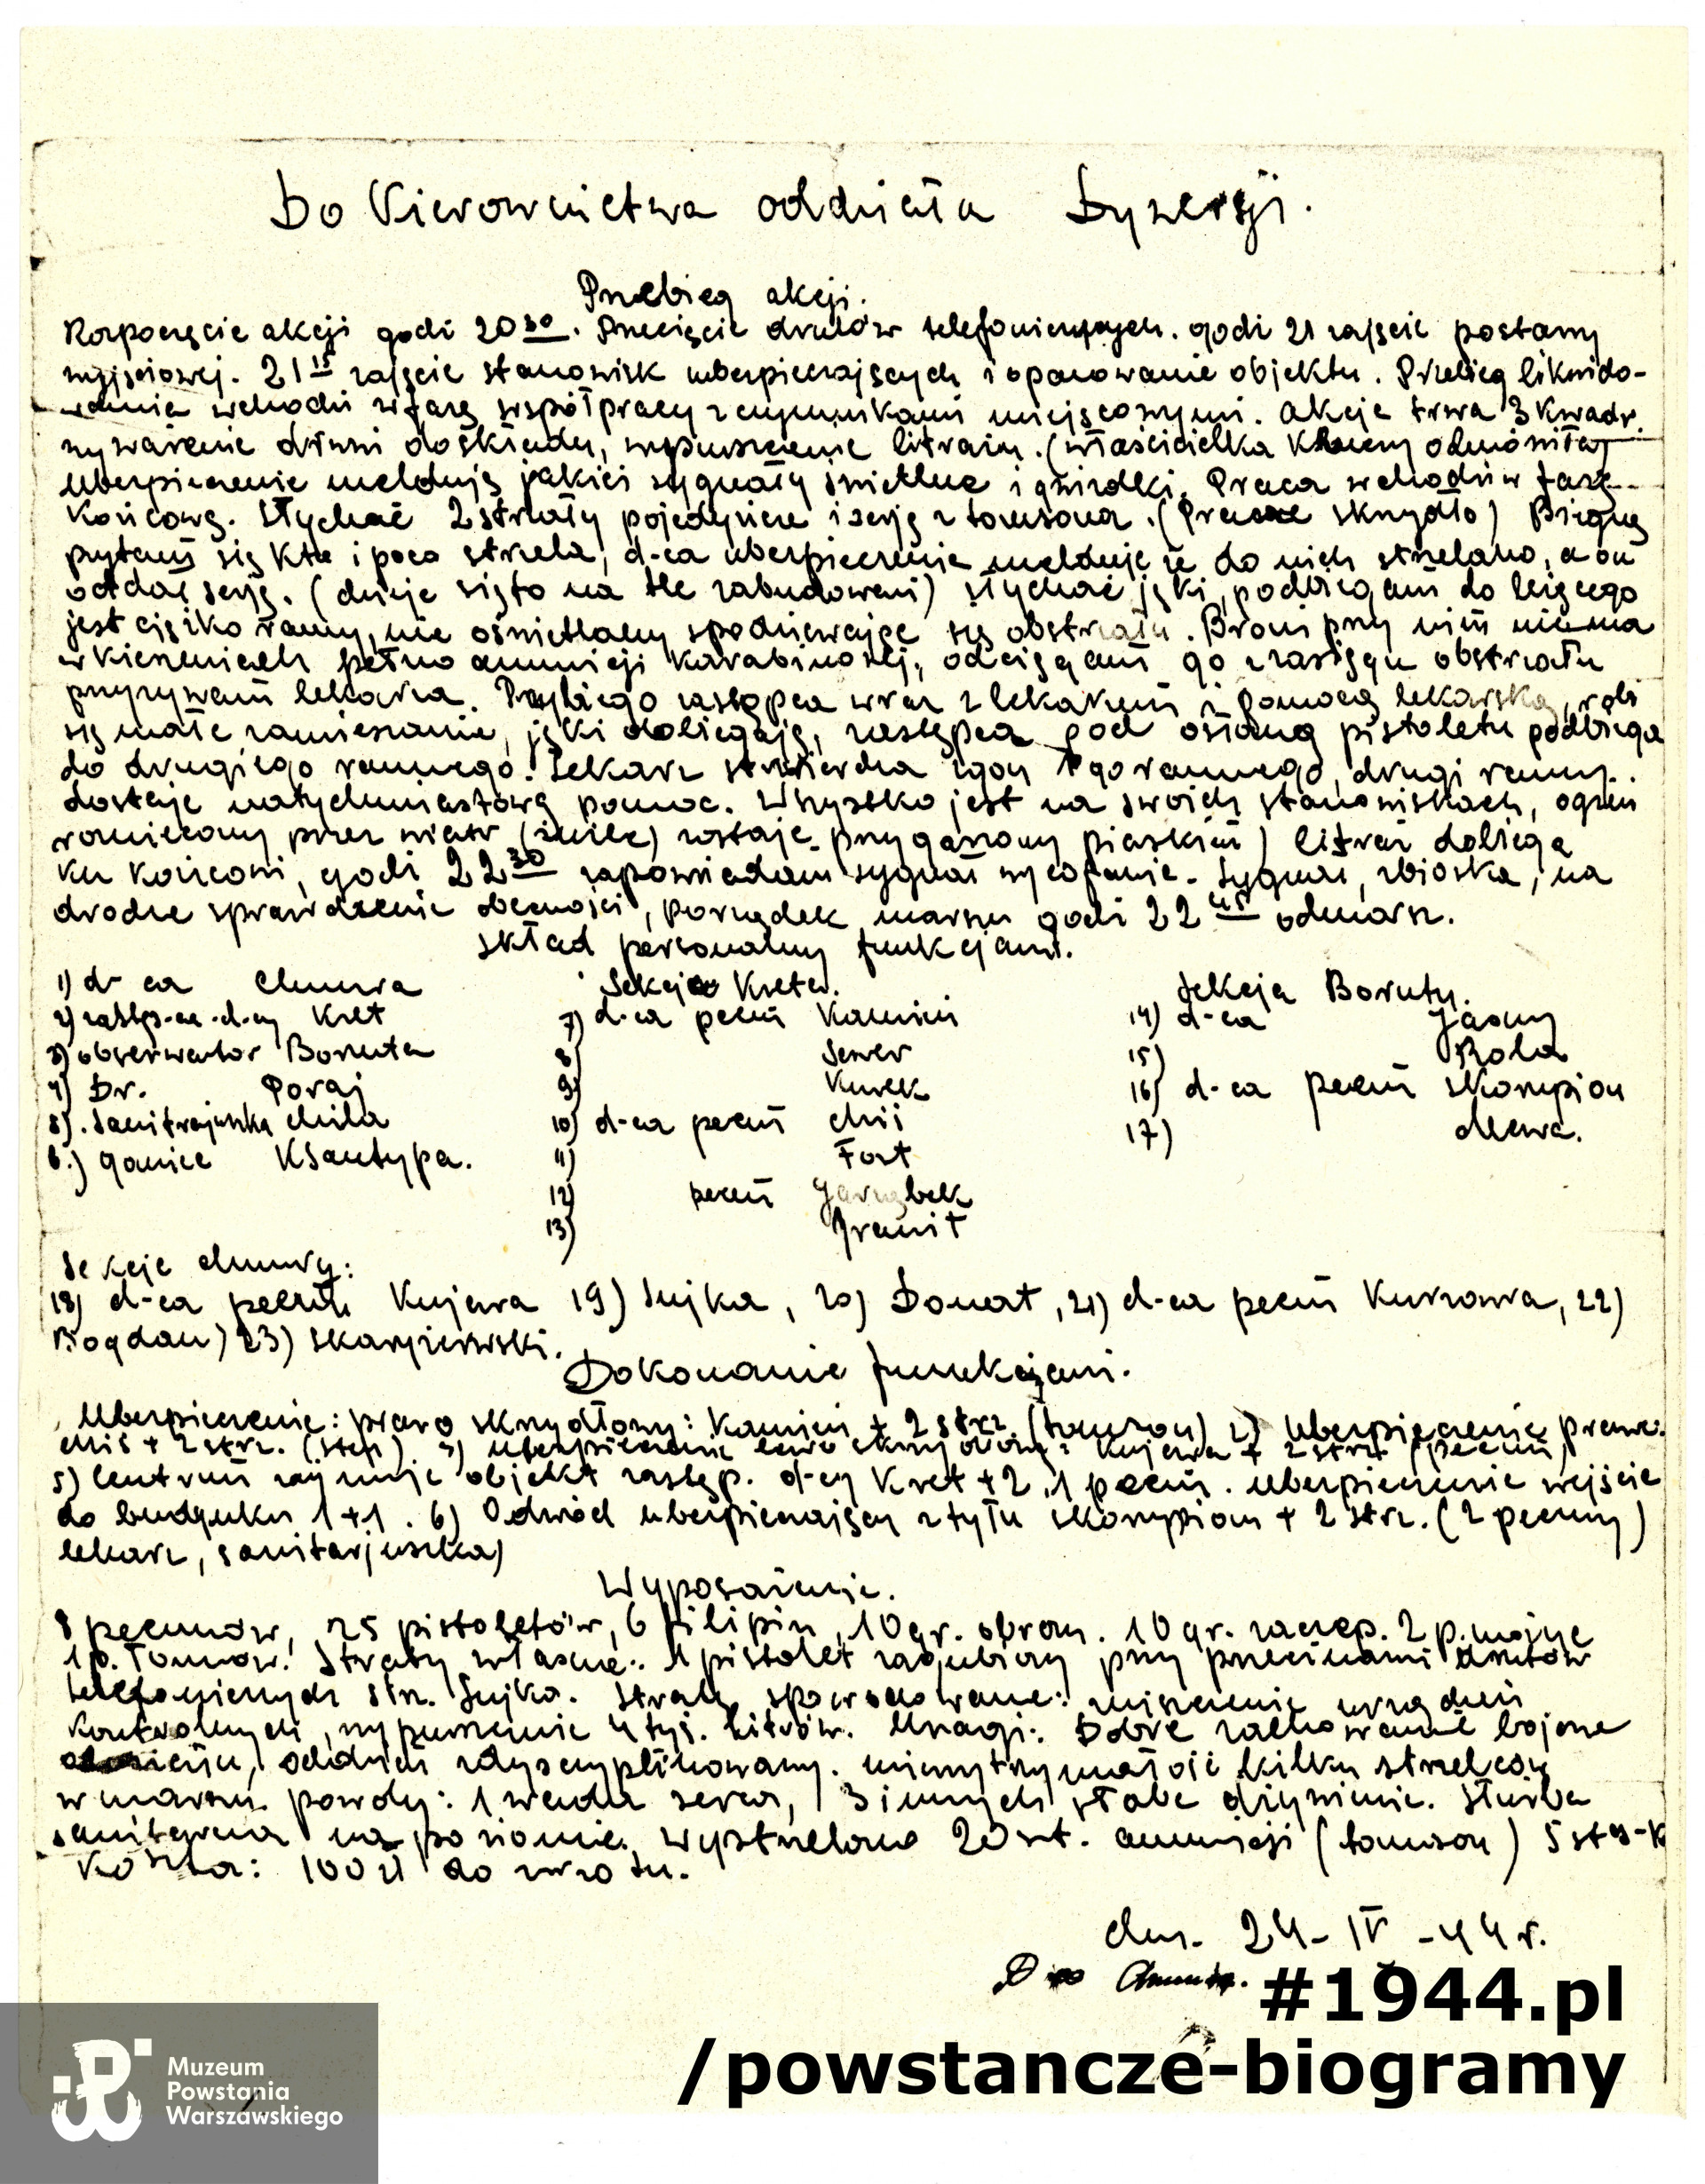 Do Kierownictwa oddziału Dywersji.
Przebieg akcji.
Rozpoczęcie akcji godź 20 30. Przecięcie drutów telefonicznych. godź 21 zajęcie postawy
wyjściowej. 21 15 zajęcie stanowisk ubezpieczających i opanowanie objektu. Przebieg likwido-
wania wchodzi w fazę współpracy z czynnikami miejscowymi. Akcja trwa 3 kwadr.
wyważenie drzwi do składu, wypuszczenie litraży. (właścicielka kluczy odmówiła)
Ubezpieczenie meldują jakieś sygnały świetlne i gwizdki. Praca wchodzi w fazę
końcową. Słychać 2 strzały pojedyncze i serję z tomsona. (Prawe skrzydło) Biegnę
pytam się kto i poco strzela, d-ca ubezpieczenia melduje że do nich strzelano, a on
oddał serję. (dzieje się to na tle zabudowań) słychać jęki, podbiegam do leżącego
jest ciężko ranny, nie oświetlamy spodziewając się obstrzału. Broni przy nim niema
w kieszeniach pełno amunicji karabinowej, odciągam go z zasięgu obstrzału
przyzywam lekarza. Przybiega zastępca wraz z lekarzem i pomocą lekarską, robi
się małe zamieszanie, jęki dobiegają, zastępca pod osłoną pistoletu podbiega
do drugiego rannego. Lekarz stwierdza zgon 1go rannego, drugi ranny
dostaje natychmiastową pomoc. Wszystko jest na swoich stanowiskach, ogień
rozniecony przez wiatr zostaje przygaszony piaskiem) litraż dobiega
ku końcowi, godź 22 30 zapowiadam sygnał wycofanie. Sygnał, zbiórka, na
drodze sprawdzenie obecności, porządek marszu godź 22 45 odmarsz.
Skład personalny funkcjami.
1) d-ca Chmura
2) zastęp-ca d-cy Kret
3) obserwator Boruta
4) Dr. Poraj
5). Sanitarjuszka Mila
6.) goniec Ksantypa.
Sekcja Kreta.
7) d-ca peem Kamień
8) Sewer
9) Kurek
10) d-ca peem Miś
11) Fort
12) peem Jarząbek
13) Granit
Sekcja Boruty.
14) d-ca Jasny
15) Rola
16) d-ca peem Skorpion
17) Mewa.
Sekcja Chmury:
18) d-ca peem Kujawa 19) Sujka, 20) Donat, 21) d-ca peem Kurzawa, 22)
Bogdan) 23) Skarżewski.
Dokonanie funkcjami.
Ubezpieczenie: prawo skrzydłowy: Kamień + 2 strz. (tomson) 2) Ubezpieczenie prawe.
Miś + 2 strz. (sten). 3) Ubezpieczenie lewo skrzydłowy: Kujawa + 2 strz. (peem)
5) Centrum zajmuje objekt zastęp. d-cy Kret + 2, 1 peem. Ubezpieczenie wejście
do budynku 1 + 1. 6) Odwód ubezpieczający z tyłu Skorpion + 2 strz. (2 peemy)
lekarz, sanitarjuszka)
Wyposażenie.
8 peemów, 25 pistoletów, 6 filipin, 10 gr. obron. 10 gr. zaczep.
Straty własne: 1 pistolet zagubiony przy przecinaniu drutów
telefonicznych strz. Sujka. Straty spowodowane: zniszczenie urządzeń
kontrolnych, wypuszczenie 4 tyś. litrów. Uwagi: Dobre zachowanie bojowe
oddział zdyscyplinowany. niewytrzymałość kilku strzelców
w marszu. powody: 1 wada serca, 3 innych słabe odżywienie. Służba
sanitarna na poziomie. Wystrzelano 20 szt. amunicji (tomson)
Koszta: 100 zł do zwrotu.
dn. 24-IV-44 r.
D-ca Chmura.
#1944.pl
/powstancze-biogramy
Muzeum
Powstania
Warszawskiego